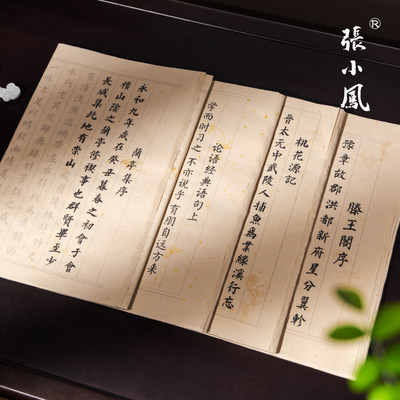 張小鳳®
滕王閣序
豫章故郡洪都新府星分翼軫
桃花源記
晉太元中武陵人捕魚為業緣溪行忘
论语经典语句上
学而时习之 不亦说乎 有朋自远方来
蘭亭集序
永和九年歲在癸丑暮春之初會于會
稽山陰之蘭亭脩禊事也群賢畢至少
長咸集此地有崇山